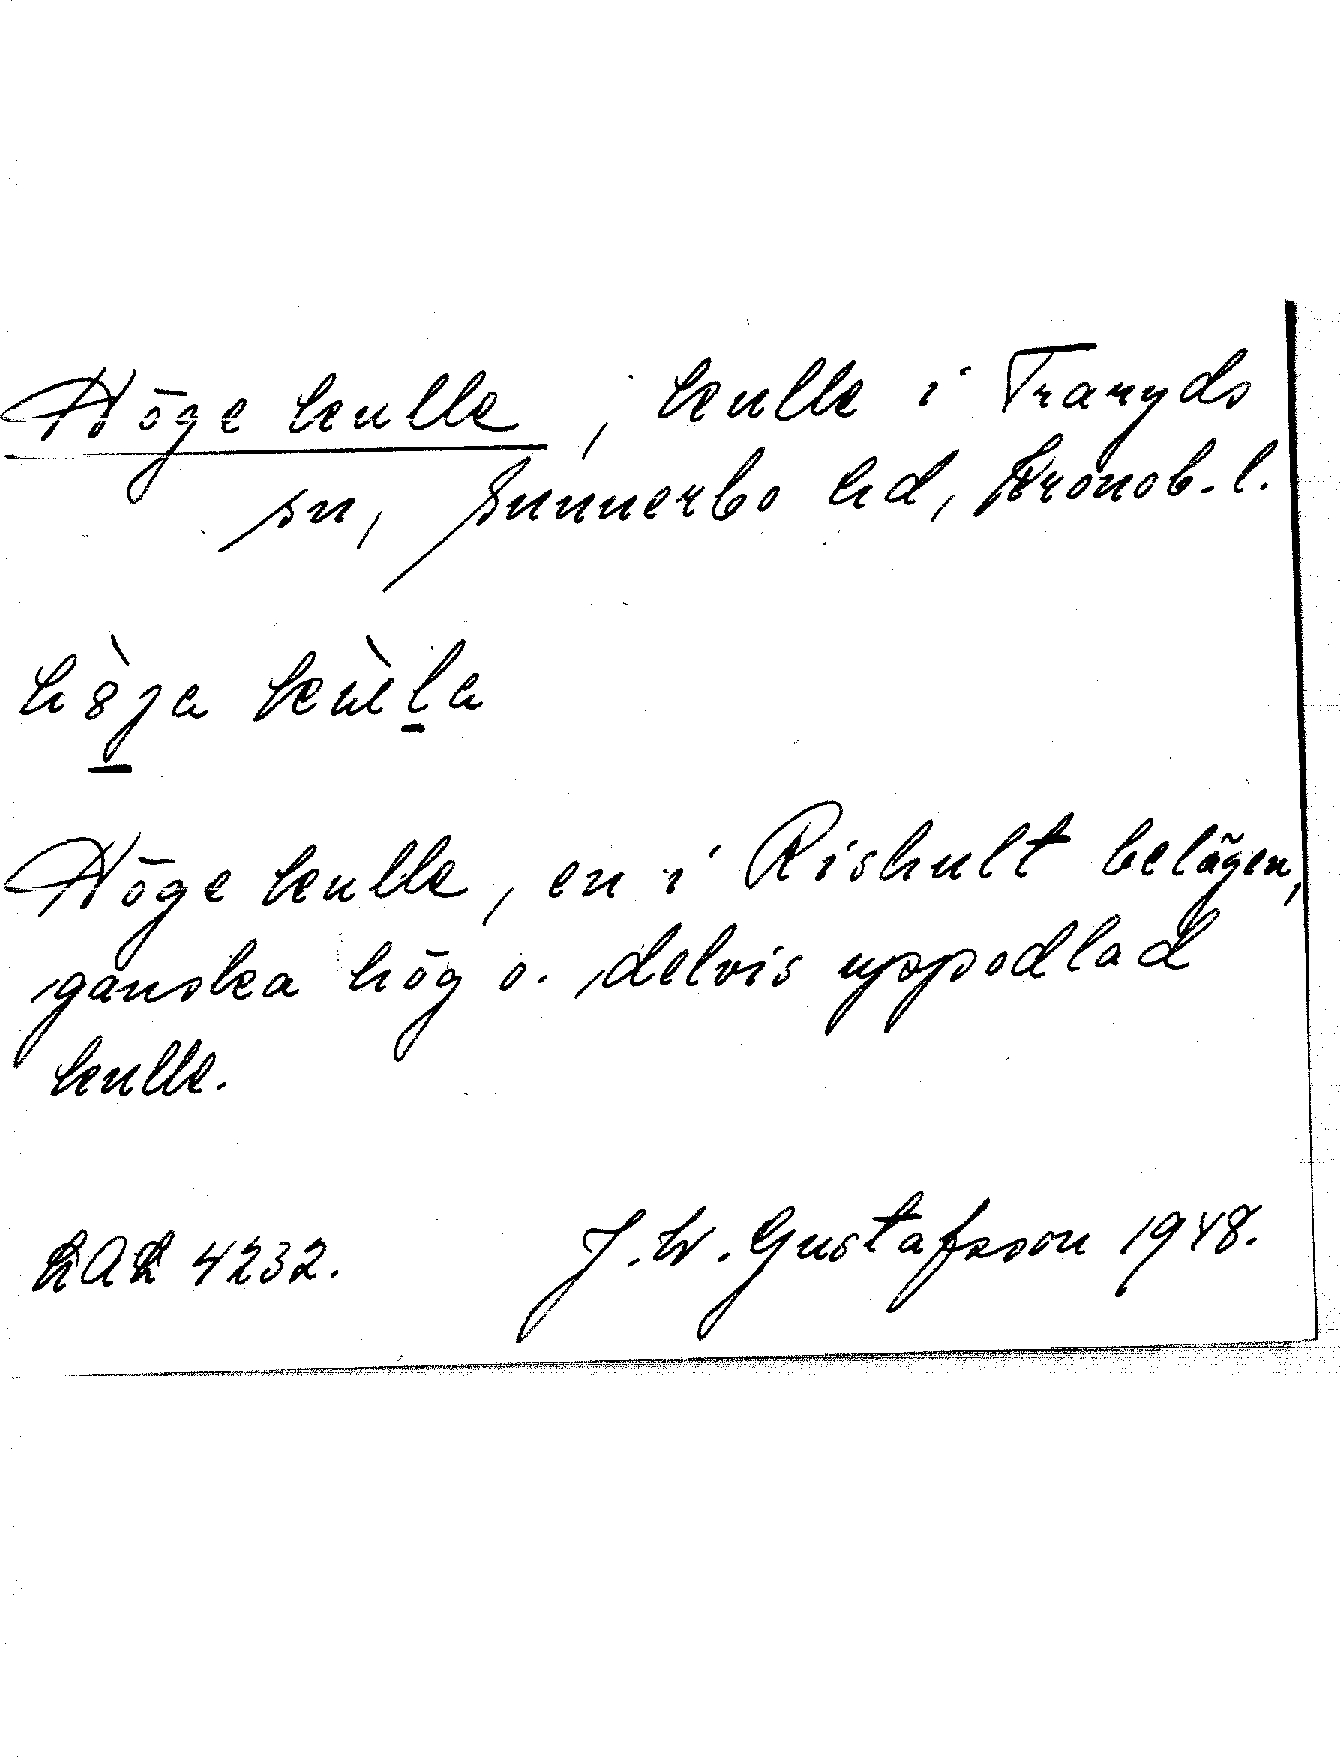 Höge kulle, kulle i Traryds
sn, Sunnerbo hd, Kronob. l.
Höge kulle, en i Rishult belägen,
ganska hög o. delvis uppodlad
kulle.
4232. J. W. Gustafsson 1948.